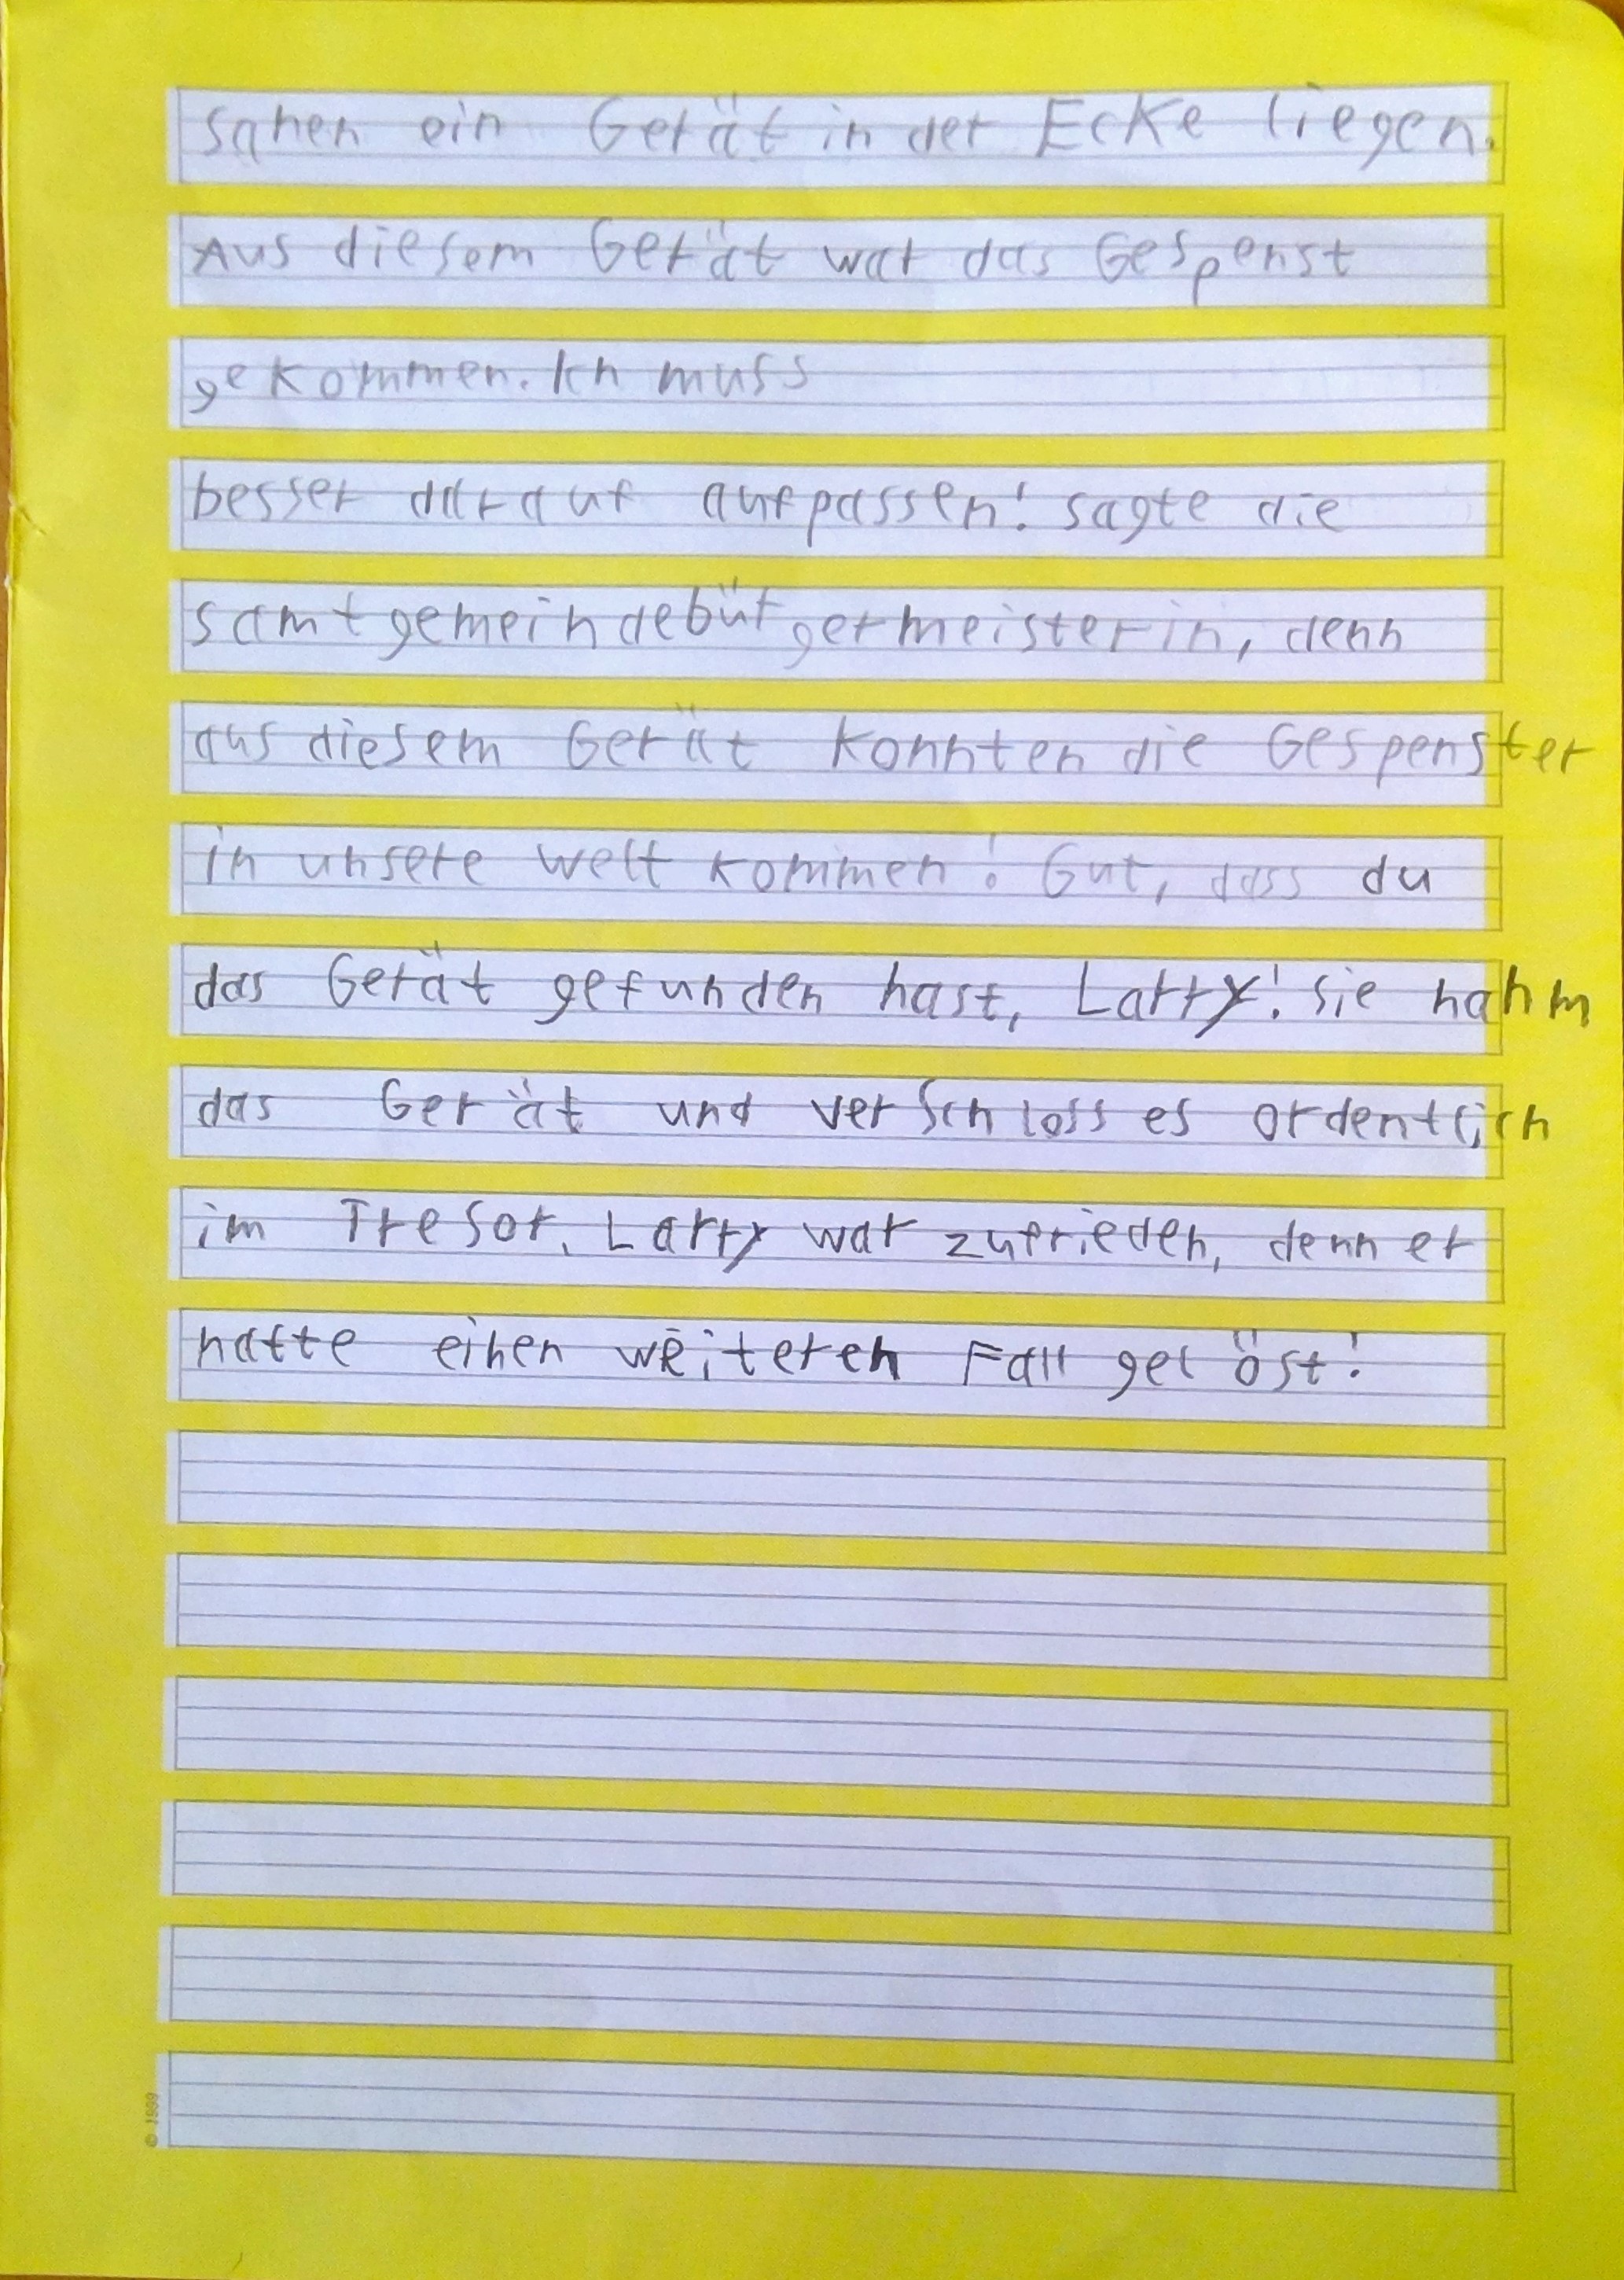 sahen ein Gerät in der Ecke liegen.
Aus diesem Gerät war das Gespenst
gekommen. Ich muss
besser darauf aufpassen! sagte die
samtgemeindebürgermeisterin, denn
aus diesem Gerät konnten die Gespenster
in unsere welt kommen! Gut, dass du
das Gerät gefunden hast, Larry! sie nahm
das Gerät und verschloss es ordentlich
im Tresor. Larry war zufrieden, denn er
hatte einen weiteren Fall gelöst!
© 1999